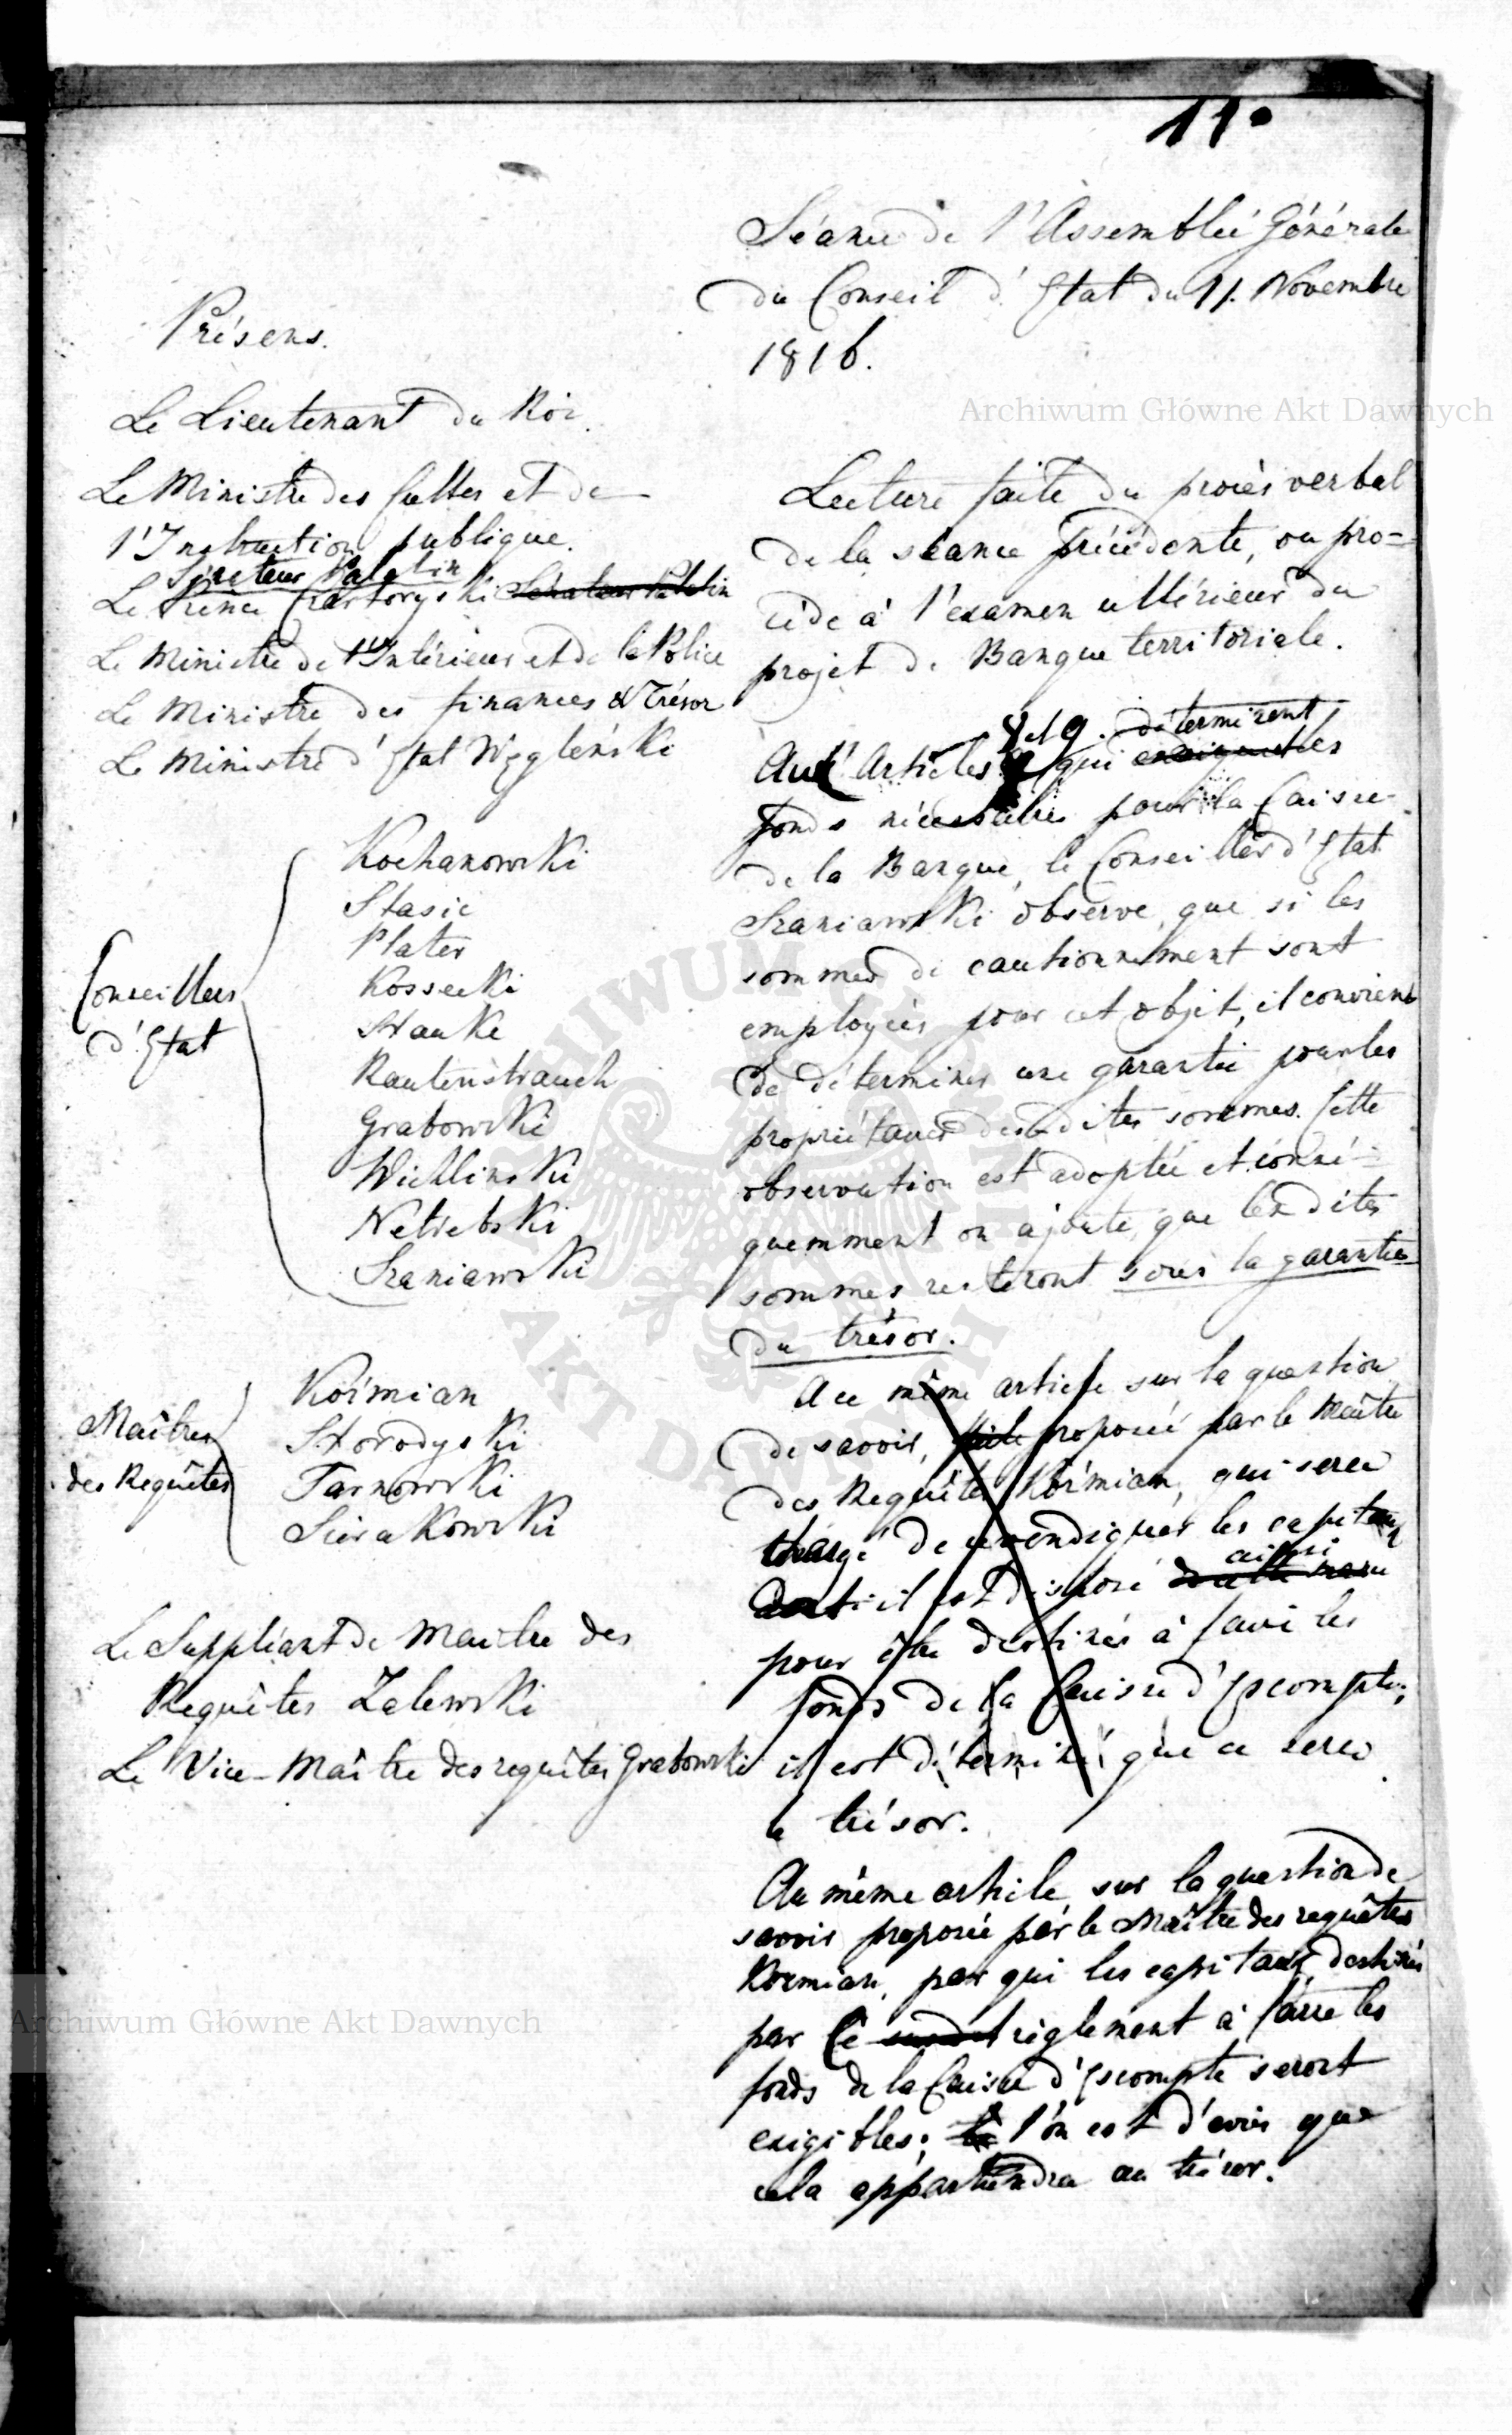 11.
Séance de l'Assemblée Générale
du Conseil d'Etat du 11. Novembre
1816.
Présens.
Le Lieutenant du Roi.
Le Ministre des Cultes et de
l'Instruction publique.
Sénateur Palatin
Le Prince Czartoryski Sénateur Palatin
Le Ministre de l'Intérieur et de la Police
Le Ministre des finances & Trésor
Le Ministre d'Etat Węgleński
Conseillers
d'Etat
Kochanowski
Stasic
Plater
Kossecki
Hauke
Rautenstrauch
Grabowski
Wichlinski
Netrebski
Szaniawski
Maîtres
des Requêtes
Koźmian
Horodyski
Tarnowski
Sierakowski
Le Suppléant de Maitre des
Requêtes Zalewski
Le Vice-Maître des requêtes Grabowski
Lecture faite du procès verbal
de la séance précédente, on pro=
cède à l'examen ultérieur du
projet de Banque territoriale.
8 et 9. déterminent
Aux Articles qui les
fonds nécessaires pour la Caisse
de la Banque, le Conseiller d'Etat
Szaniawski observe, que si les
sommes de cautionnement sont
employées pour cet objet, il convient
de déterminer une garantie pour les
propriétaires desdites sommes. Cette
observation est adoptée et consé=
quemment on ajoute, que lesdites
sommes resteront sous la garantie
du trésor.
Au même article sur la question
de savoir, faite proposée par le Maître
des Requêtes Koźmian, qui sera
chargé de revendiquer les capitaux
ainsi
dont il est disposé
pour être destinés à faire les
fonds de la Caisse d'Escompte;
il est déterminé que ce sera
le trésor.
Au même article, sur la question de
savoir proposée par le Maître des requêtes
Kozmian, par qui les capitaux destinés
par le règlement à faire les
fonds de la Caisse d'Escompte seront
exigibles; l'on est d'avis que
cela appartiendra au trésor.
Archiwum Główne Akt Dawnych
ARCHIWUM GŁÓWNE AKT DAWNYCH
Archiwum Główne Akt Dawnych